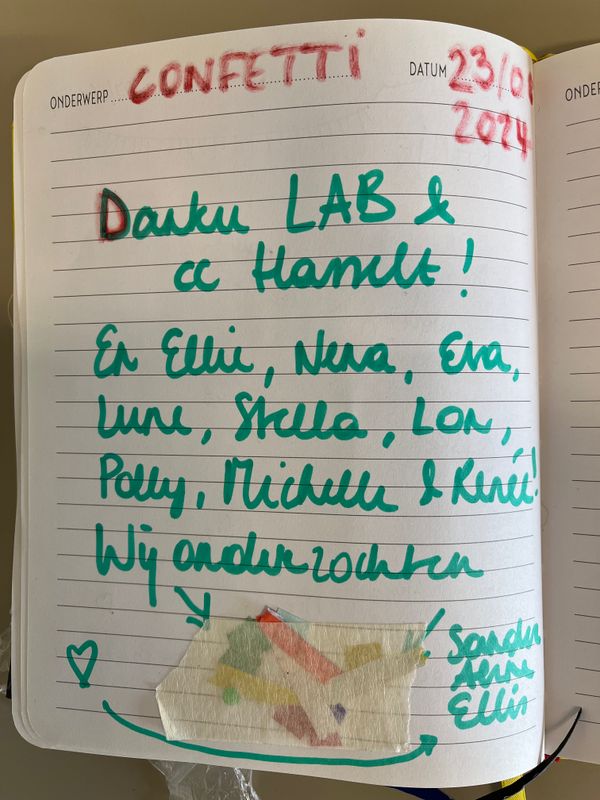 ONDERWERP CONFETTI DATUM 23/0
2024
Danku LAB &
cc Hasselt!
En Ellie, Nena, Eva,
Lune, Stella, Lon,
Polly, Michelle & Renée!
Wij onderzochten
Sander
Ellis
ONDE